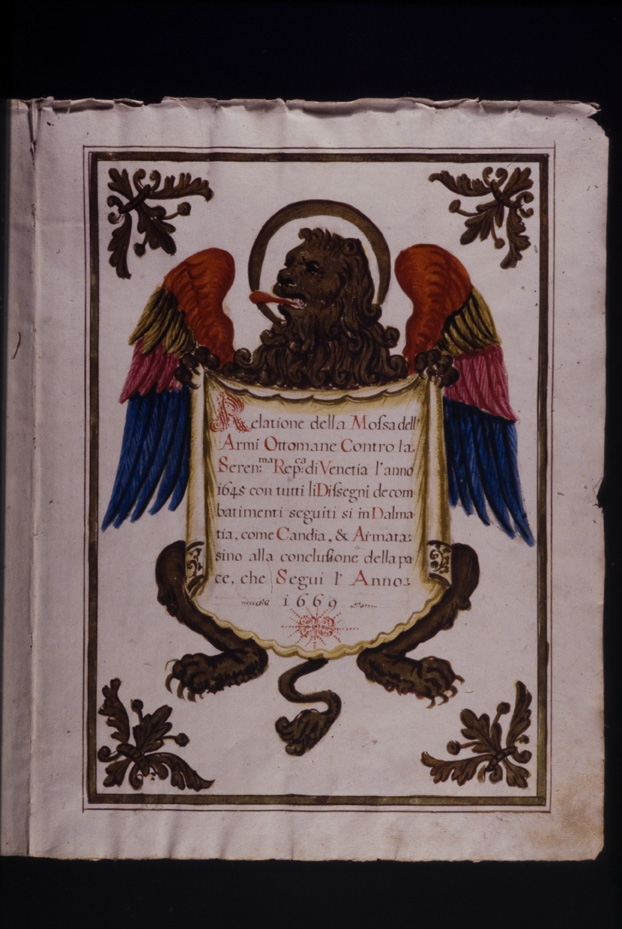 Relatione della Mossa dell'
Armi Ottomane Contro la
Seren:ma Rep:ca di Venetia l'anno
1645 con tutti li Dissegni de com
batimenti seguiti si in Dalma
tia, come Candia, & Armata:
sino alla conclusione della pa
ce, che Segui l' Anno:
1669